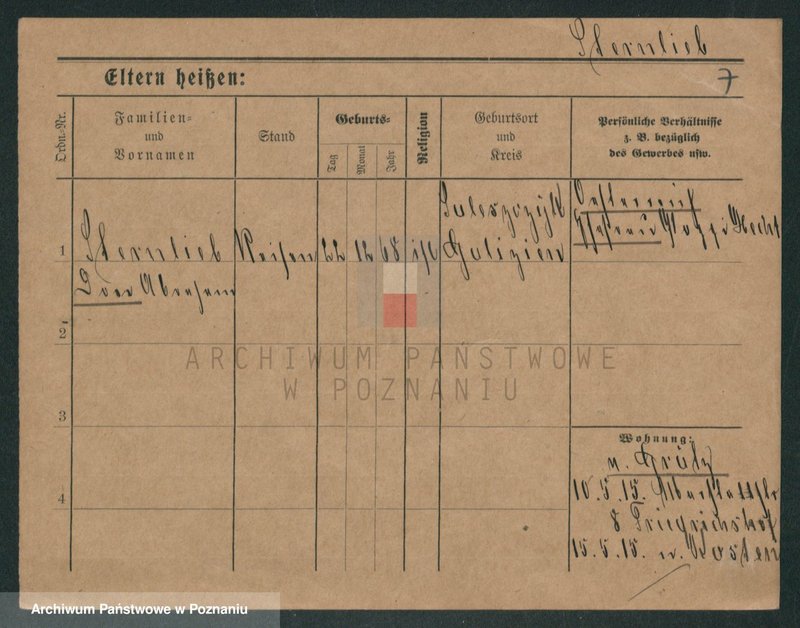 Sternlieb
7
Eltern heißen:
Ordn.-Nr.
Familien=
und
Vornamen
Stand
Geburts=
Tag
Monat
Jahr
Religion
Geburtsort
und
Kreis
Persönliche Verhältnisse
z. B. bezüglich
des Gewerbes usw.
1
Sternlieb
Abraham
22
12
68
Galizien
Oesterreich
Ehefrau
Hecht
2
3
4
Wohnung:
n. Grätz
10.5.15.
8 Friedrichshof
15.5.15. n. Posten
ARCHIWUM PAŃSTWOWE
W POZNANIU
Archiwum Państwowe w Poznaniu